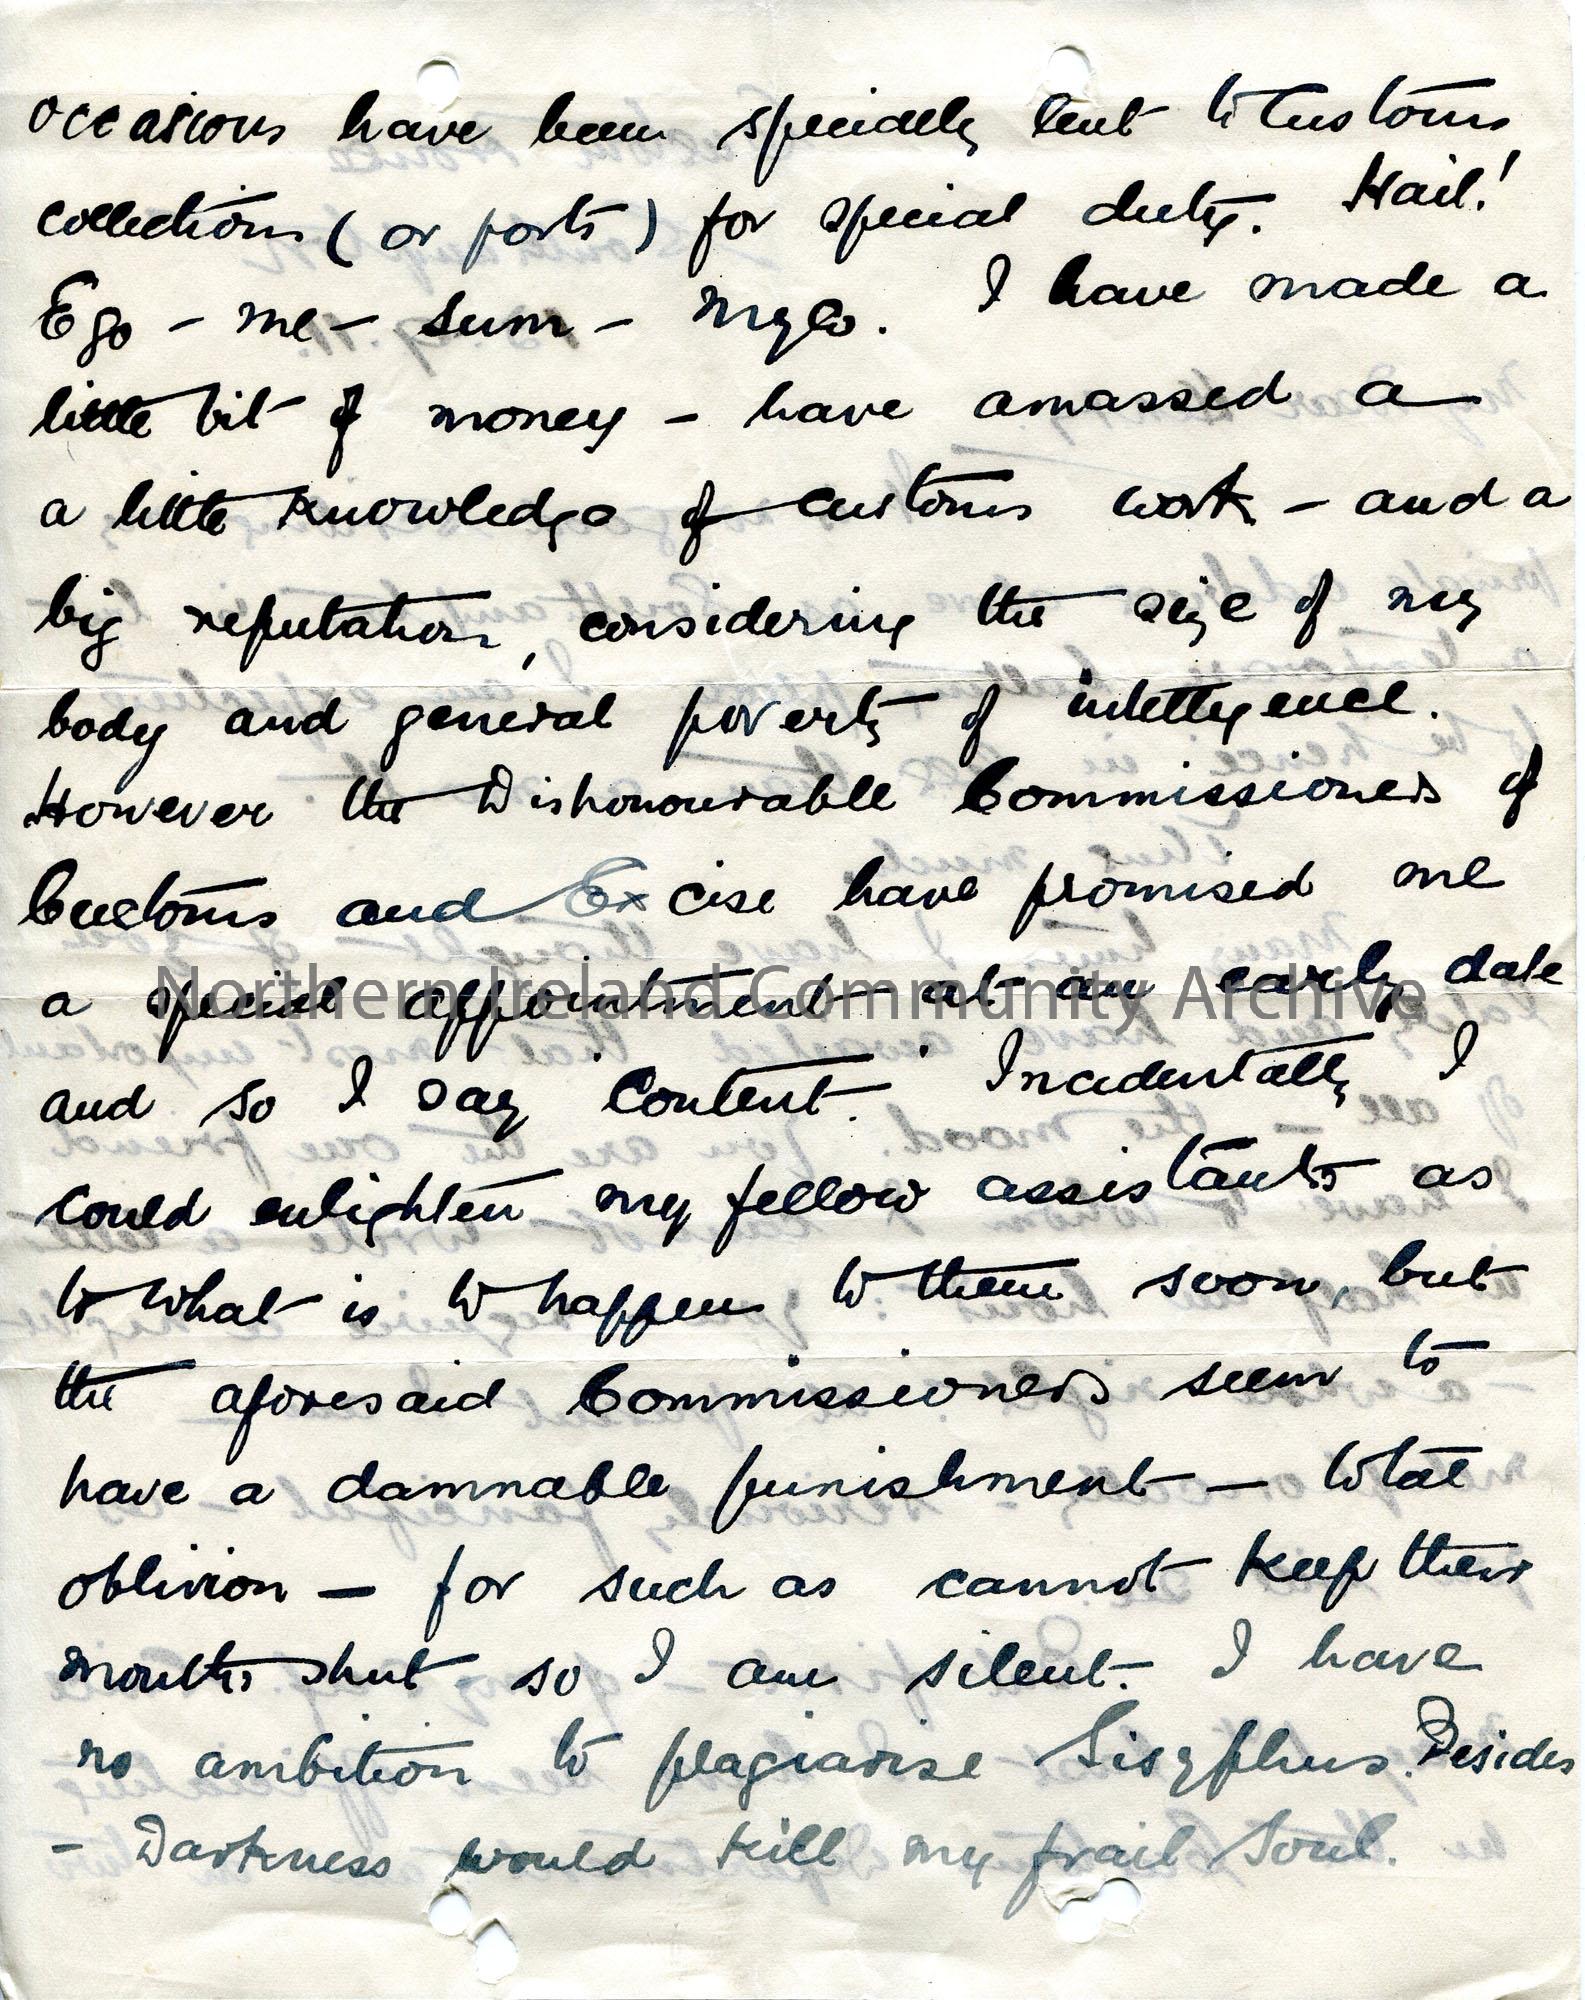 occasions have been specially lent to Customs
collections (or ports) for special duty. Hail!
Ego - me - sum - Myles. I have made a
little bit of money - have amassed a
a little knowledge of customs work - and a
big reputation, considering the size of my
body and general poverty of intelligence.
However the Dishonourable Commissioners of
Customs and Excise have promised me
a special appointment at an early date
Northern Ireland Community Archive
and so I say 'Content.' Incidentally I
could enlighten my fellow assistants as
to what is to happen to them soon, but
the aforesaid Commissioners seem to
have a damnable punishment - total
oblivion - for such as cannot keep their
mouths shut - so I am silent. I have
no ambition to plagiarise Sisyphus. Besides
- Darkness would kill my frail Soul.